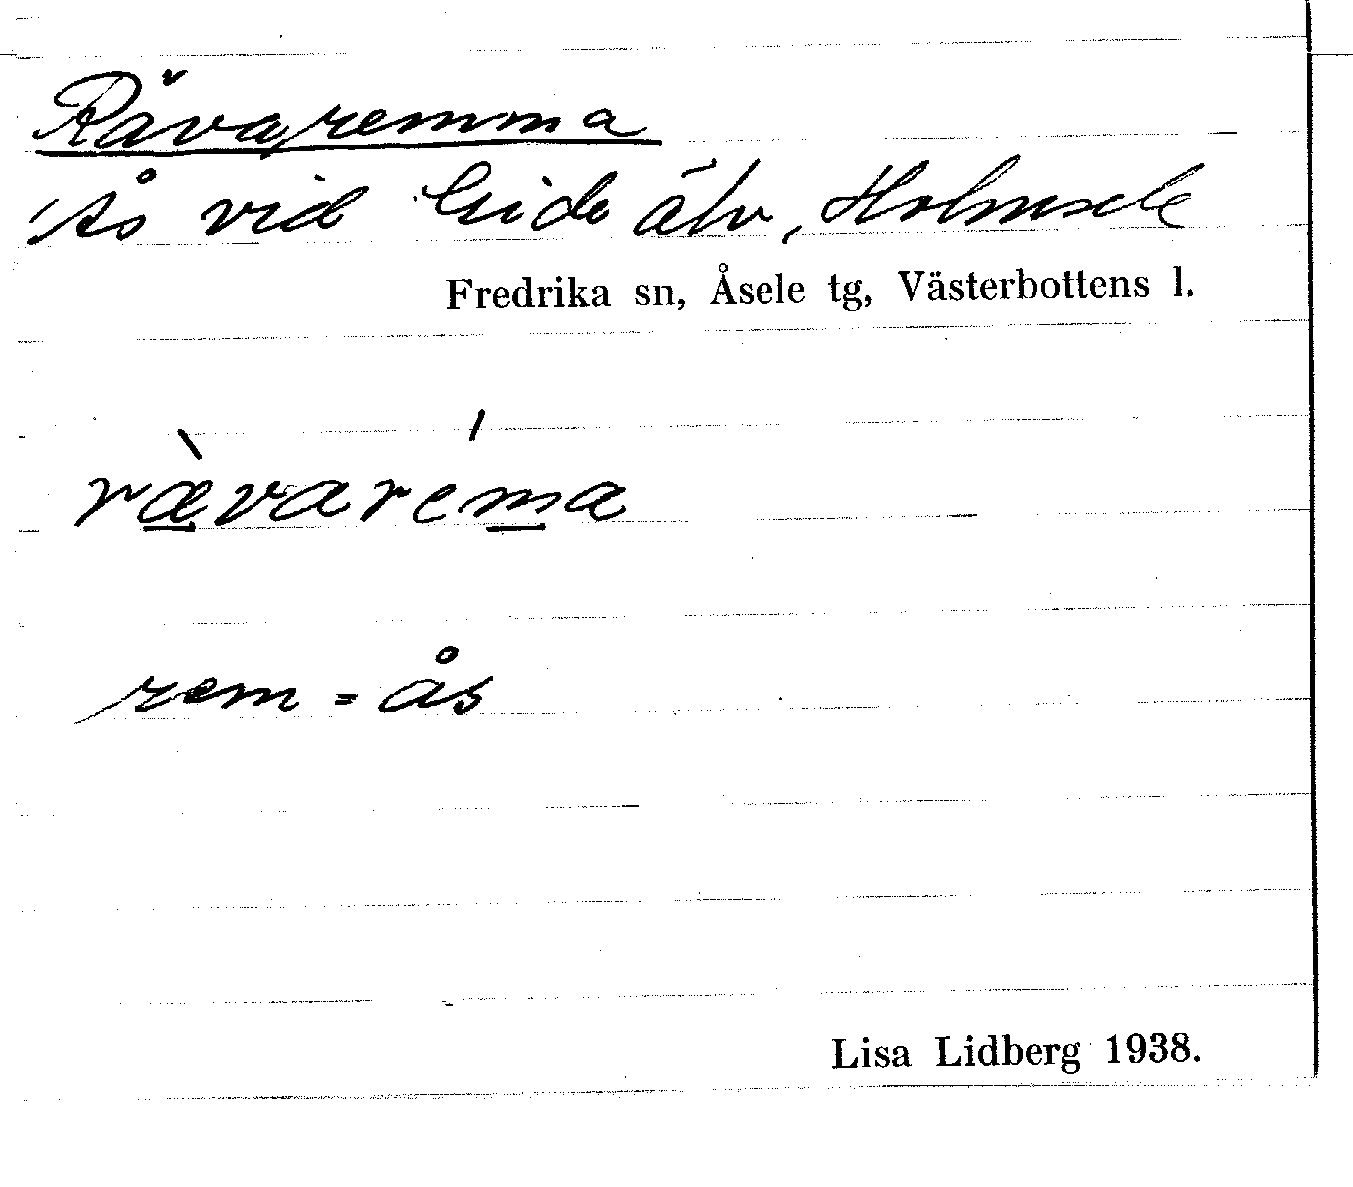 Rävaremma
Ås vid Gide älv, Holmsele
Fredrika sn, Åsele tg, Västerbottens l.
rævarema
rem = ås
Lisa Lidberg 1938.